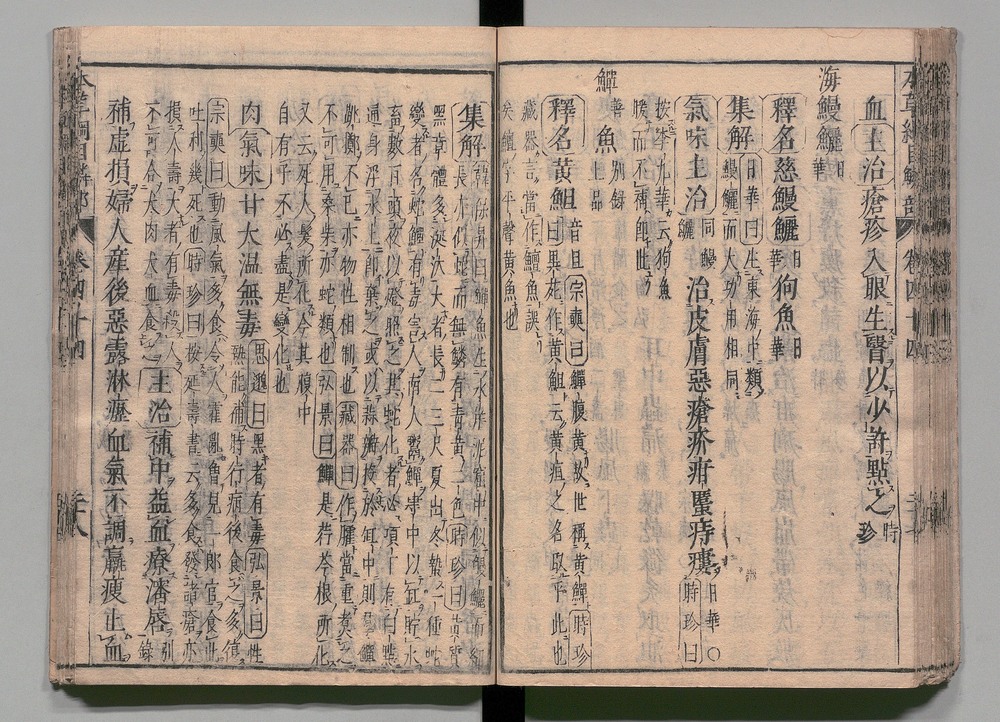 血主治瘡疹入眼生瞖以少許點之時珍
海鰻鱺日華
釋名慈鰻鱺日華狗魚日華
集解日華曰生東海中類鰻鱺而大功用相同
氣味同鰻鱺主治治皮膚惡瘡疥疳䘌痔瘻日華○時珍曰
按李九華云狗魚暖而不補即此
鱓魚別錄上品
釋名黃䱉音旦宗奭曰鱓腹黃故世稱黃鱓時珍曰異苑作黃䱉云黃疸之名取乎此也
藏器言當作鱣魚誤矣鱣字平聲黃魚也
集解韓保昇曰鱓魚生水岸泥窟中似鰻鱺而細長亦似蛇而無鱗有青黃二色時珍曰黃質
黑章體多涎沫大者長二三尺夏出冬蟄一種蛇變者名蛇鱓有毒害人南人鬻鱓肆中以缸貯水
畜數百頭夜以燈照之其蛇化者必項下有白點通身浮水上即棄之或以蒜瓣投於缸中則羣鱓
跳擲不已亦物性相制也藏器曰作臛當重煮之不可用桑柴亦蛇類也弘景曰鱓是荇芩根所化
又云死人髮所化今其腹中自有子不必盡是變化也
肉氣味甘大温無毒思邈曰黑者有毒弘景曰性熱能補時行病後食之多復
宗奭曰動風氣多食令人霍亂曾見一郎官食此吐利幾死也時珍曰按延壽書云多食發諸瘡亦
損人壽大者有毒殺人不可合犬肉犬血食之主治補中益血療瀋唇別錄
補虛損婦人產後惡露淋瀝血氣不調羸瘦止血
本草綱目鱗部 卷四十四